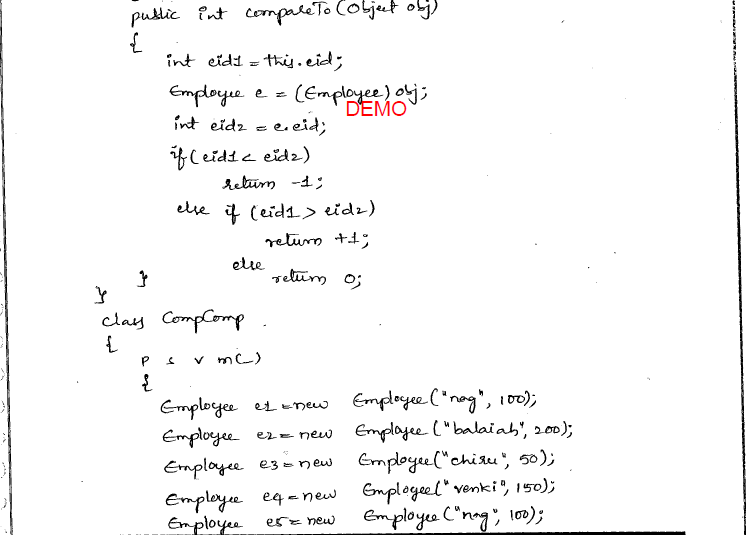 public int compareTo(Object obj)
{
int eid1 = this.eid;
Employee e = (Employee) obj;
DEMO
int eid2 = e.eid;
if(eid1 < eid2)
return -1;
else if (eid1 > eid2)
return +1;
else
return 0;
}
}
class CompComp
{
p s v m(-)
{
Employee e1 = new Employee("nag", 100);
Employee e2 = new Employee ("balaiah", 200);
Employee e3 = new Employee("chiru", 50);
Employee e4 = new Employee("venki", 150);
Employee e5 = new Employee ("nag", 100);